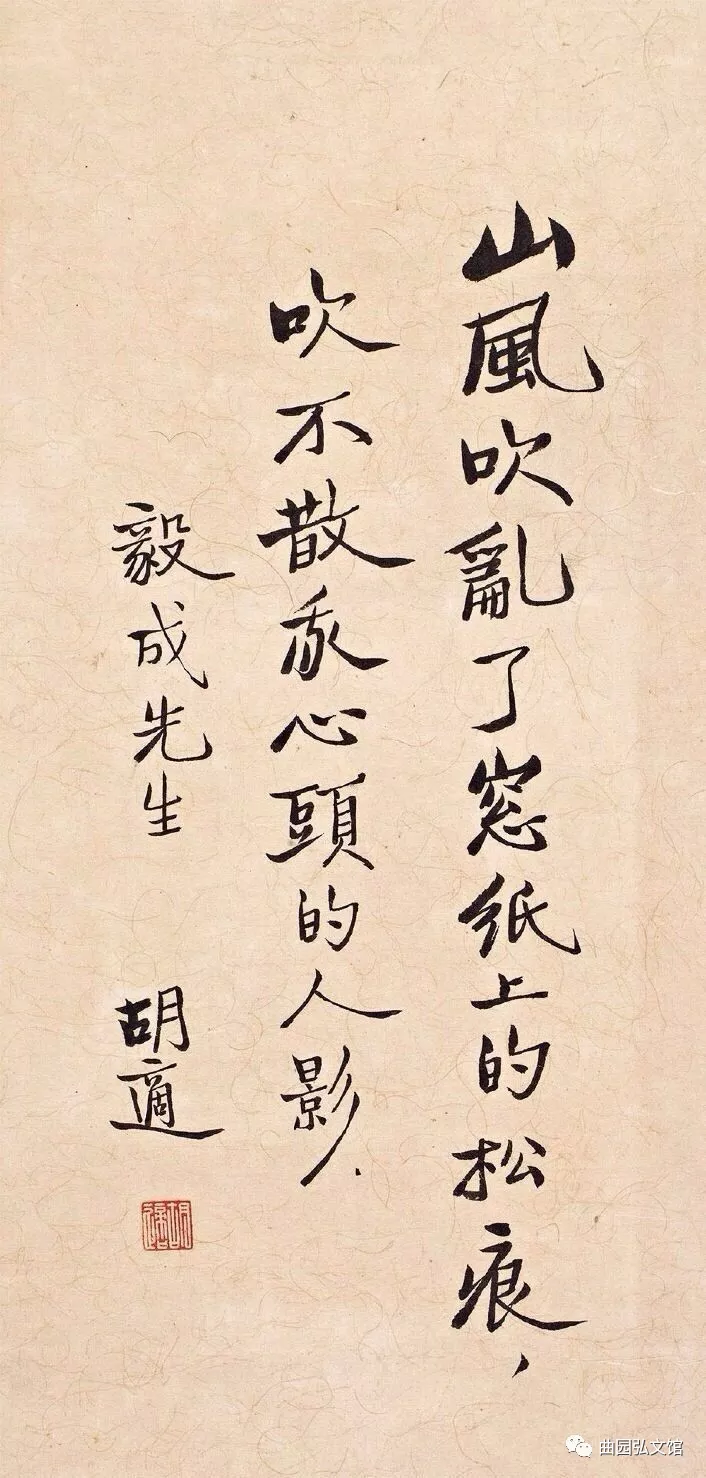 山風吹亂了窓纸上的松痕，
吹不散我心頭的人影．
毅成先生
胡適
胡適
曲园弘文馆